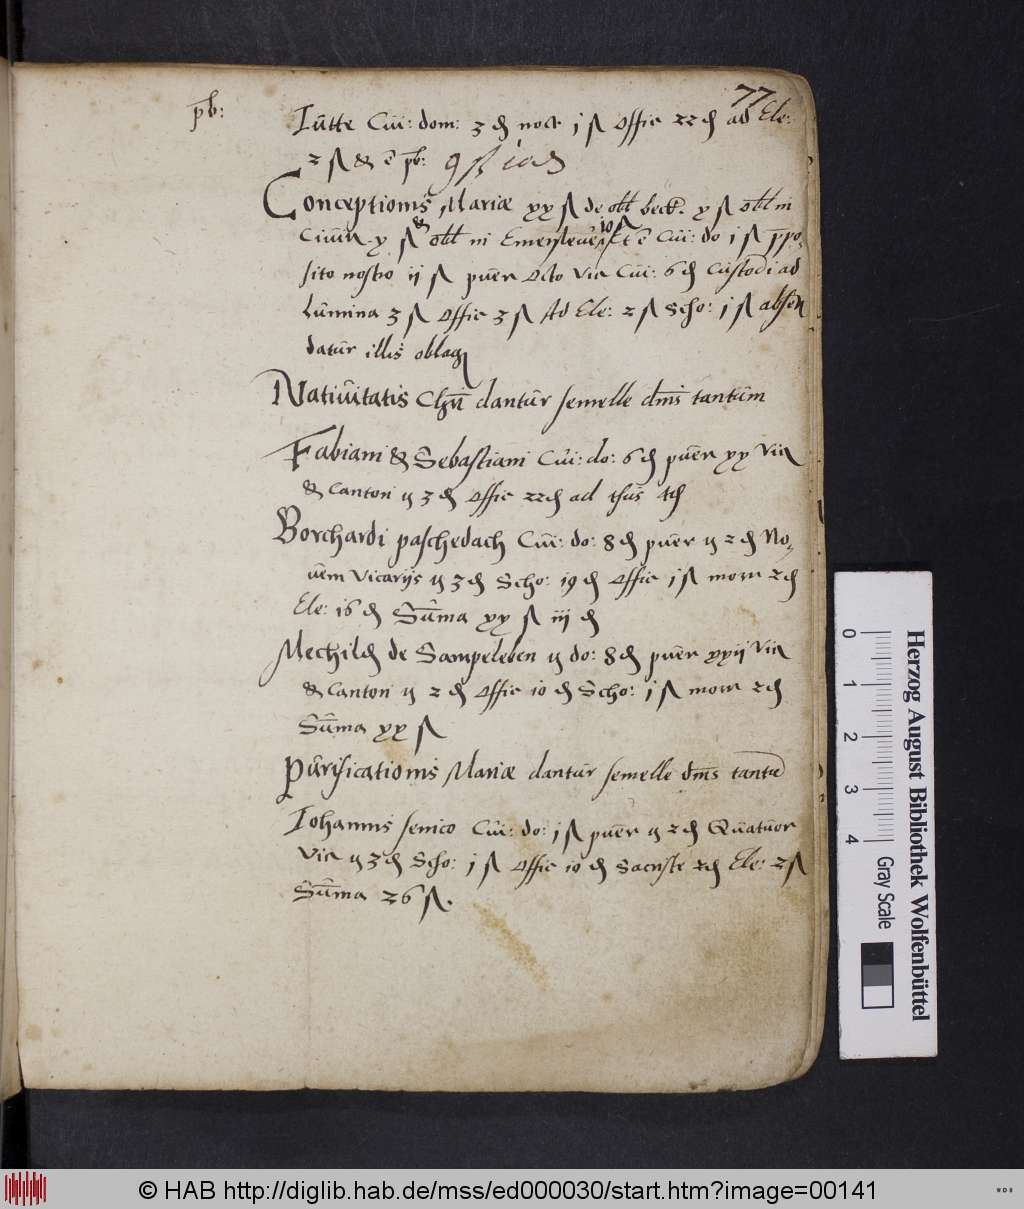 77
pb:
Jutte Cui: dom: 3 ₰ noct j ß Offic 22 ₰ ad Ele:
2 ß & e pb: 9 ß
Conceptionis Mariæ xx ß de obl beck. x ß obl in
Civita x ß & obl in Emersleve 10 ß Et e Cui: do j ß ppo-
sito nostro ij ß puer Octo Vic Cui: 6 ₰ Custodi ad
Lumina 3 ß Offic 3 ß Ad Ele: 2 ß Scho: j ß absen
datur illis oblag
Nativitatis Chri dantur semelle dnis tantum
Fabiani & Sebastiani Cui: do: 6 ₰ puer xx Vic
& Cantori q 3 ₰ Offic 22 ₰ ad thus 4 ₰
Borchardi paschedach Cui: do: 8 ₰ puer q 2 ₰ No-
vem Vicarijs q 3 ₰ Scho: 19 ₰ Offic j ß morar 2 ₰
Ele: 16 ₰ Suma xx ß iij ₰
Mechild de Sampeleben q do: 8 ₰ puer xxij Vic
& Cantori q 2 ₰ Offic 10 ₰ Scho: j ß morar 2 ₰
Suma xx ß
Purificationis Mariæ dantur semelle dnis tantu
Johannis senico Cui: do: j ß puer q 2 ₰ Quatuor
Vic q 3 ₰ Scho: j ß Offic 10 ₰ Sacriste 2 ₰ Ele: 2 ß
Suma 26 ß.
0 1 2 3 4
Herzog August Bibliothek Wolfenbüttel
Gray Scale
© HAB http://diglib.hab.de/mss/ed000030/start.htm?image=00141